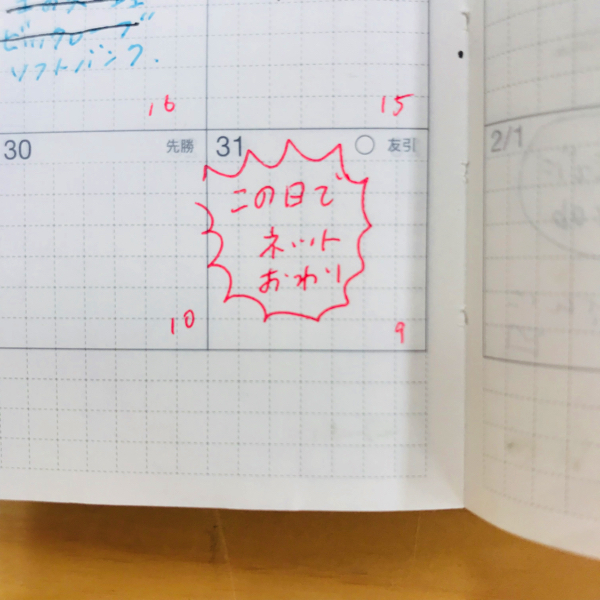 ビックカープ
ソフトバンク.
16
15
30
先勝
31
友引
2/1
この日で
ネット
おわり
10
9